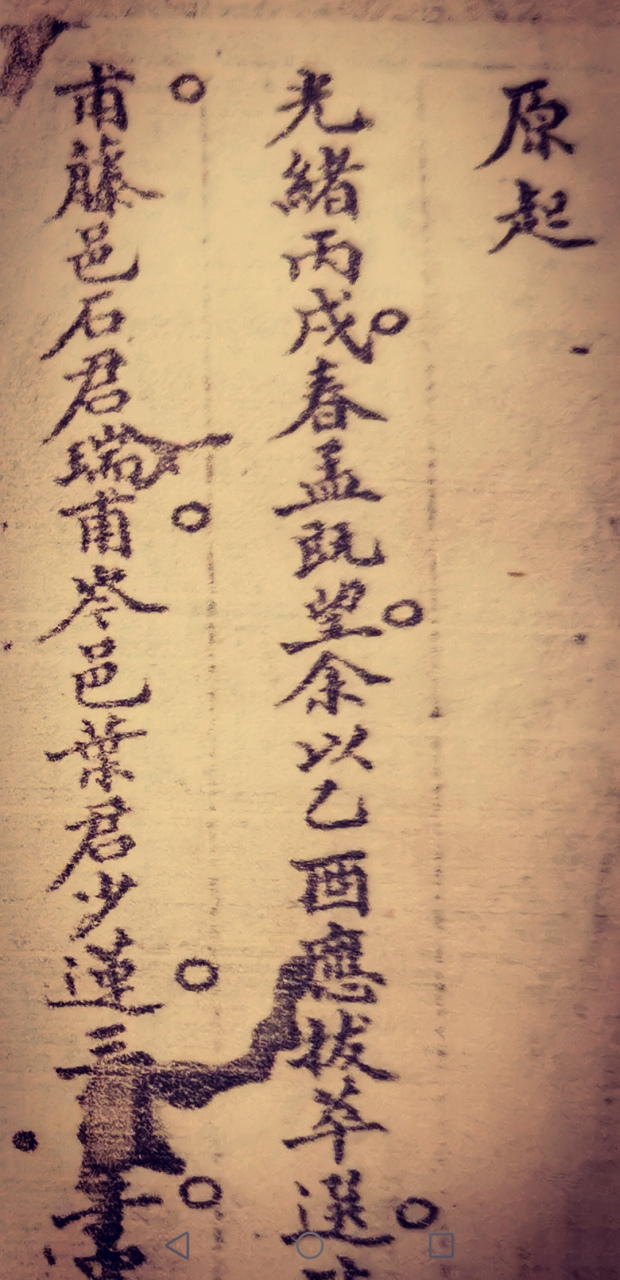 原起
光緒丙戌春孟既望余以乙酉應拔萃選
甫藤邑石君瑞甫岑邑葉君少蓮三